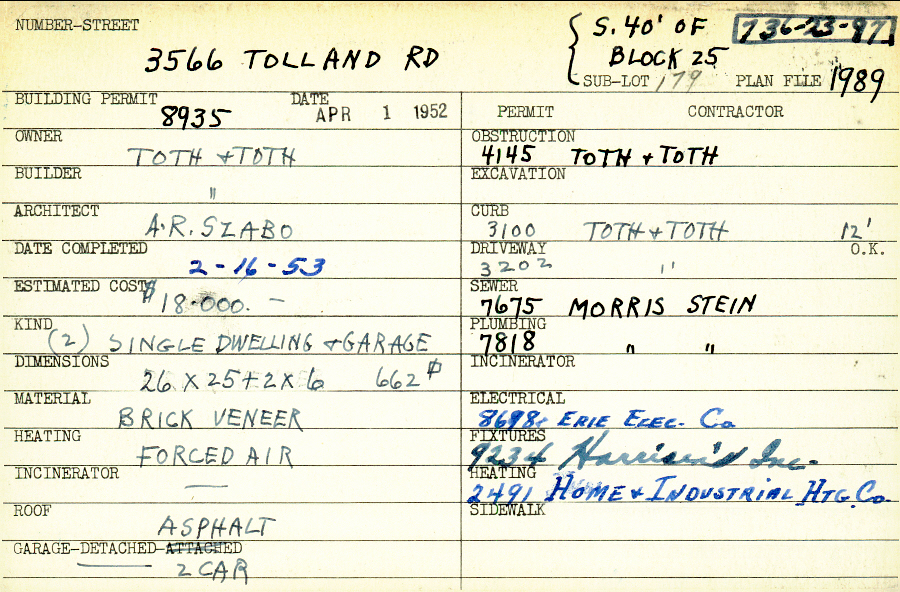 NUMBER-STREET
3566 TOLLAND RD
S. 40' OF
BLOCK 25
736-23-97
SUB-LOT 179 PLAN FILE 1989
BUILDING PERMIT 8935 DATE APR 1 1952
OWNER
TOTH + TOTH
BUILDER
"
ARCHITECT
A.R. SZABO
DATE COMPLETED
2-16-53
ESTIMATED COST
$18.000. —
KIND
(2) SINGLE DWELLING + GARAGE
DIMENSIONS
26 X 25 + 2 X 6 662
MATERIAL
BRICK VENEER
HEATING
FORCED AIR
INCINERATOR
—
ROOF
ASPHALT
GARAGE-DETACHED-ATTACHED
2 CAR
PERMIT CONTRACTOR
OBSTRUCTION
4145 TOTH + TOTH
EXCAVATION
CURB
3100 TOTH + TOTH 12'
DRIVEWAY O.K.
3202 "
SEWER
7675 MORRIS STEIN
PLUMBING
7818 " "
INCINERATOR
ELECTRICAL
8698 ERIE ELEC. Co
FIXTURES
9234 Inc.
HEATING
2491 HOME & INDUSTRIAL HTG. Co.
SIDEWALK